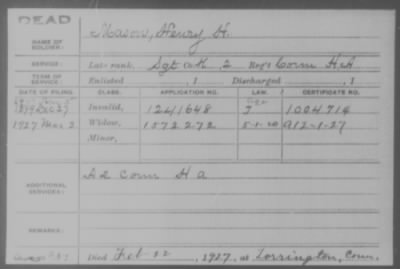 DEAD
NAME OF SOLDIER: Mason, Henry H.
SERVICE: Late rank, Sgt Co. K, 2 Reg't Conn H.A
TERM OF SERVICE: Enlisted , 1 Discharged , 1
DATE OF FILING. CLASS. APPLICATION NO. LAW. CERTIFICATE NO.
Invalid, 1241648 1004714
1927 Mar 3 Widow, 1572272 5-1-20 912-1-27
Minor,
ADDITIONAL SERVICES: A 2 Conn H A
REMARKS:
Died Feb 22, 1927, at Torrington, Conn.